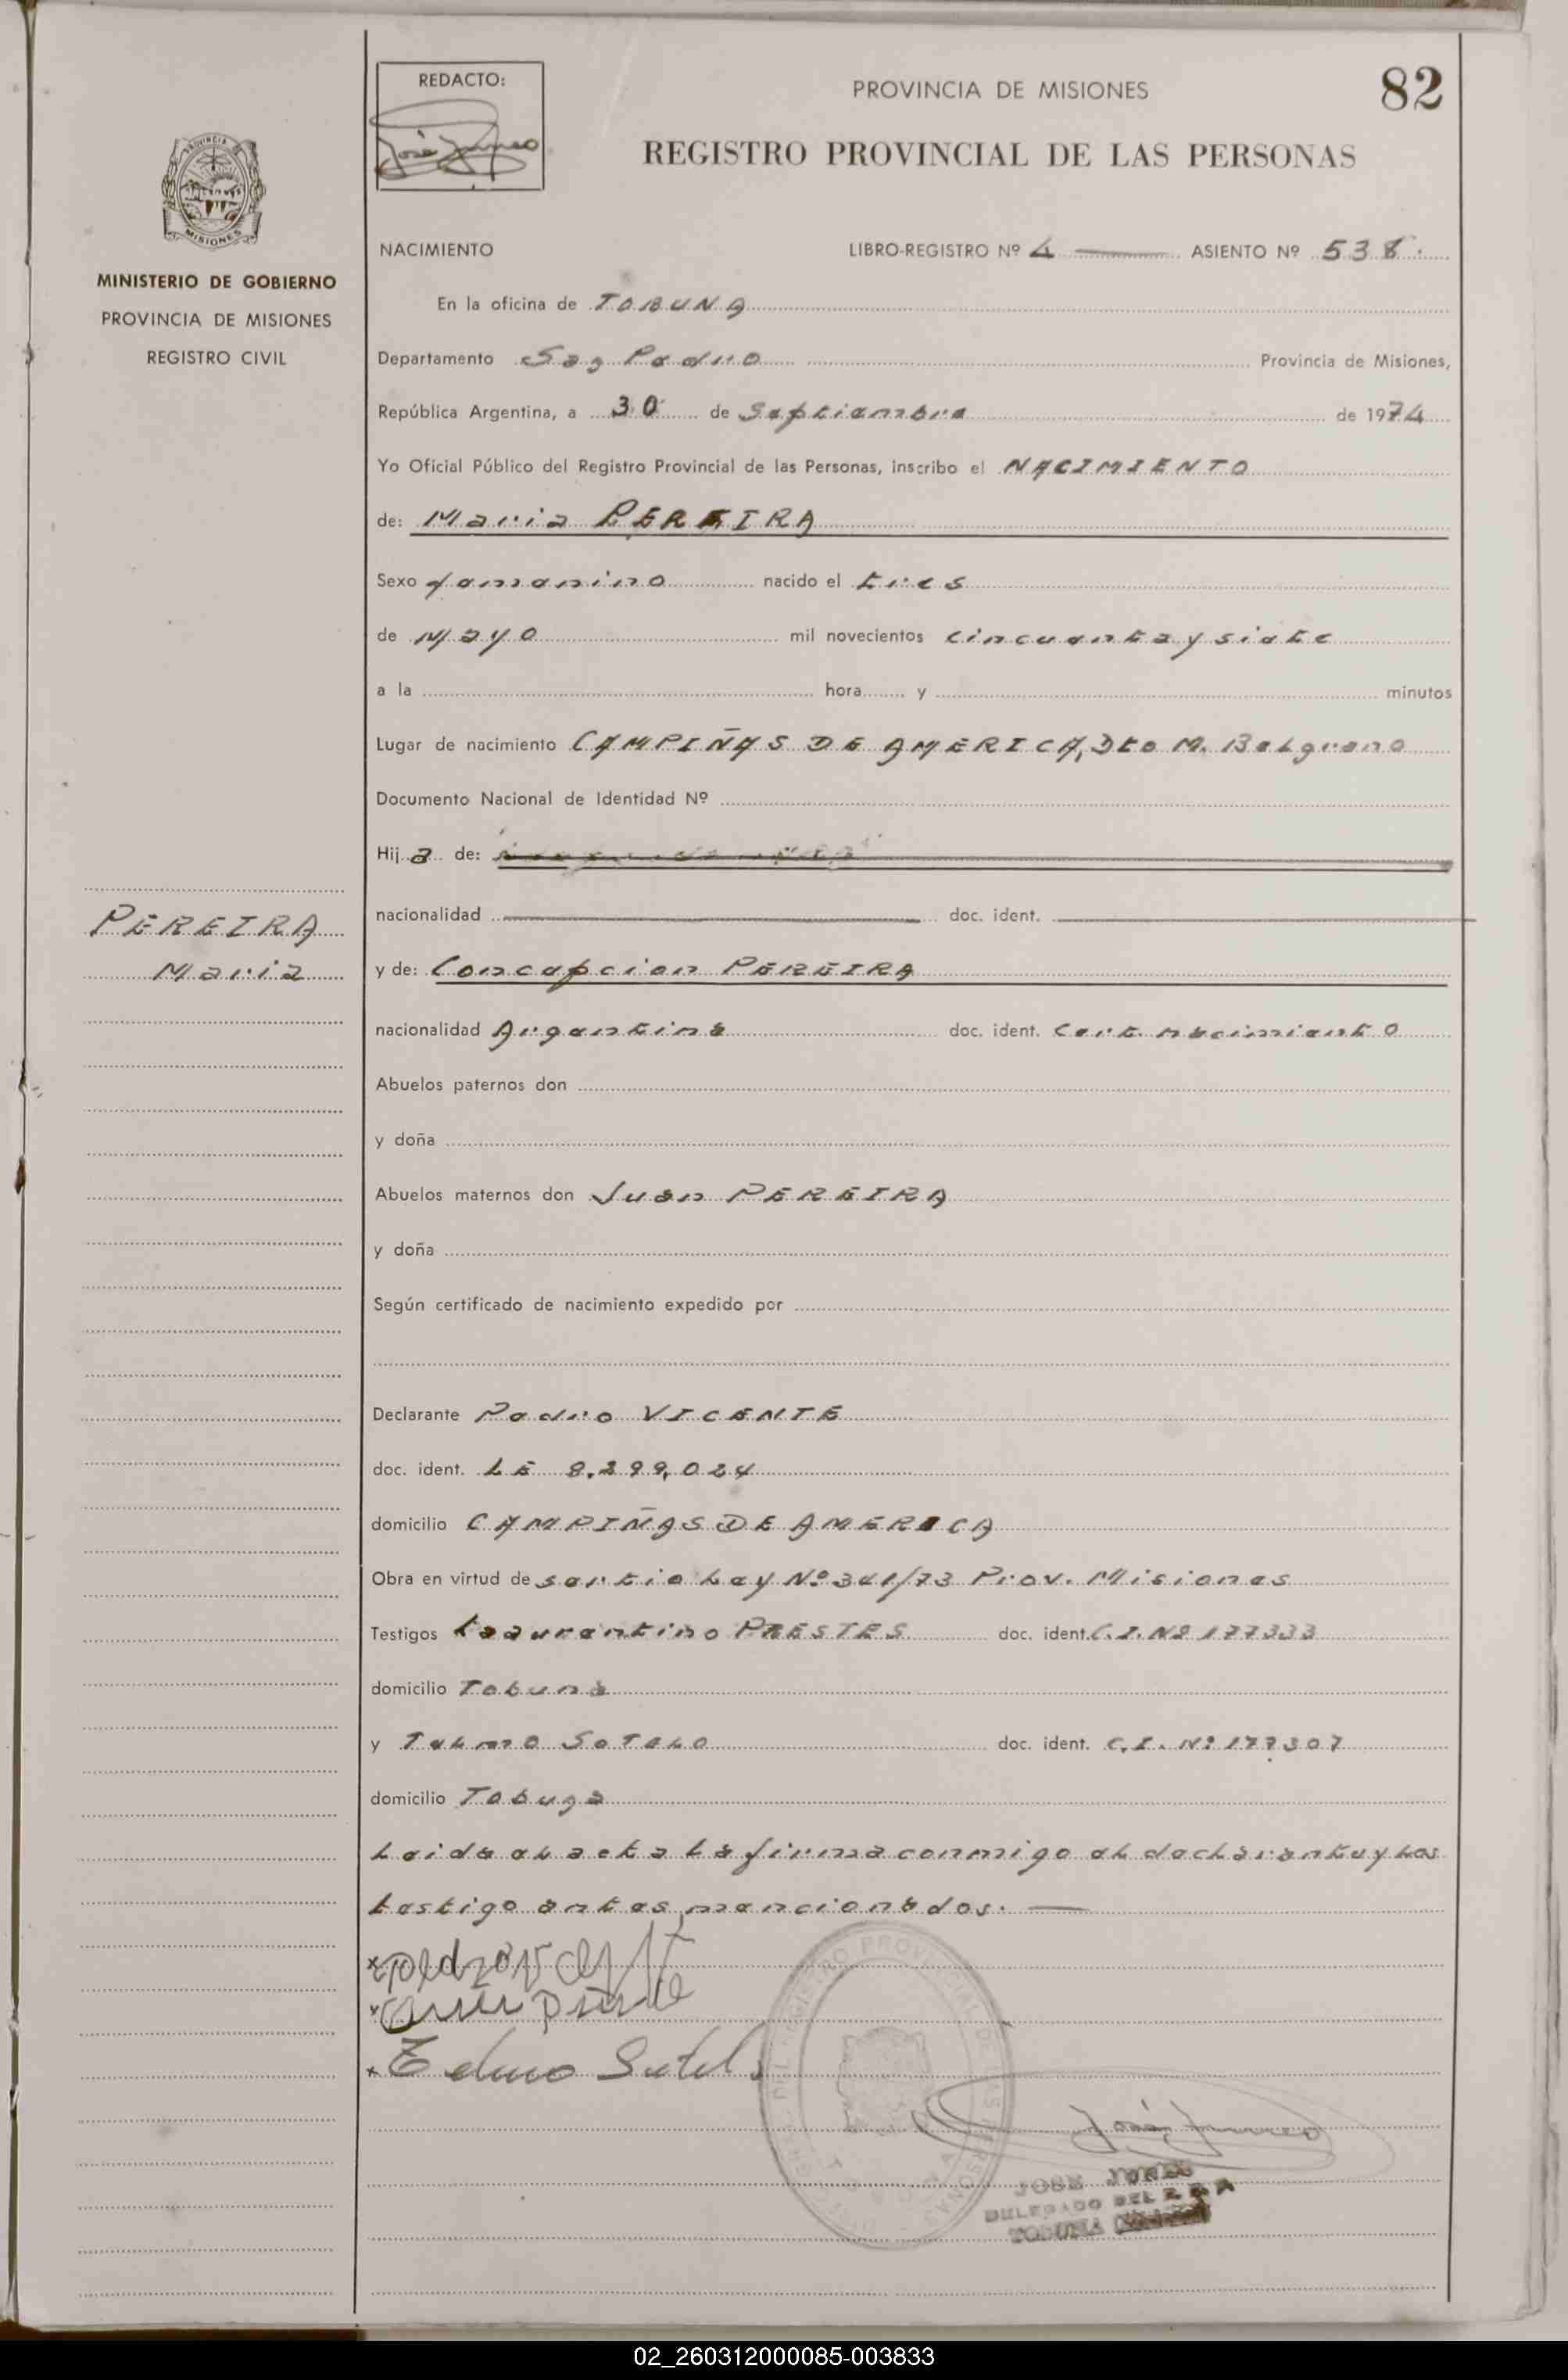 REDACTO:
José Juneo
PROVINCIA DE MISIONES
82
REGISTRO PROVINCIAL DE LAS PERSONAS
PROVINCIA DE
MISIONES
MINISTERIO DE GOBIERNO
PROVINCIA DE MISIONES
REGISTRO CIVIL
NACIMIENTO LIBRO-REGISTRO Nº 4 ASIENTO Nº 538.
En la oficina de TOBUNA
Departamento San Pedro Provincia de Misiones,
República Argentina, a 30 de Septiembre de 1974
Yo Oficial Público del Registro Provincial de las Personas, inscribo el NACIMIENTO
de: Maria PEREIRA
Sexo femenino nacido el tres
de Mayo mil novecientos cincuenta y siete
a la hora y minutos
Lugar de nacimiento CAMPIÑAS DE AMERICA, Dto M. Belgrano
Documento Nacional de Identidad Nº
Hija de:
PEREIRA
Maria
nacionalidad doc. ident.
y de: Concepcion PEREIRA
nacionalidad Argentina doc. ident. Cert. nacimiento
Abuelos paternos don
y doña
Abuelos maternos don Juan PEREIRA
y doña
Según certificado de nacimiento expedido por
Declarante Pedro VICENTE
doc. ident. LE 8.299.024
domicilio CAMPIÑAS DE AMERICA
Obra en virtud de Ley Nº 341/73 Prov. Misiones
Testigos PRESTES doc. ident. C.I. Nº 177333
domicilio Tobuna
y Telmo SOTELO doc. ident. C.I. Nº 177307
domicilio Tobuna
Leida el acta la firma conmigo el declarante y los
testigo antes mencionados. —
Telmo Sotelo
REGISTRO PROVINCIAL DE LAS PERSONAS
DELEGADO DEL
TOBUNA
02_260312000085-003833